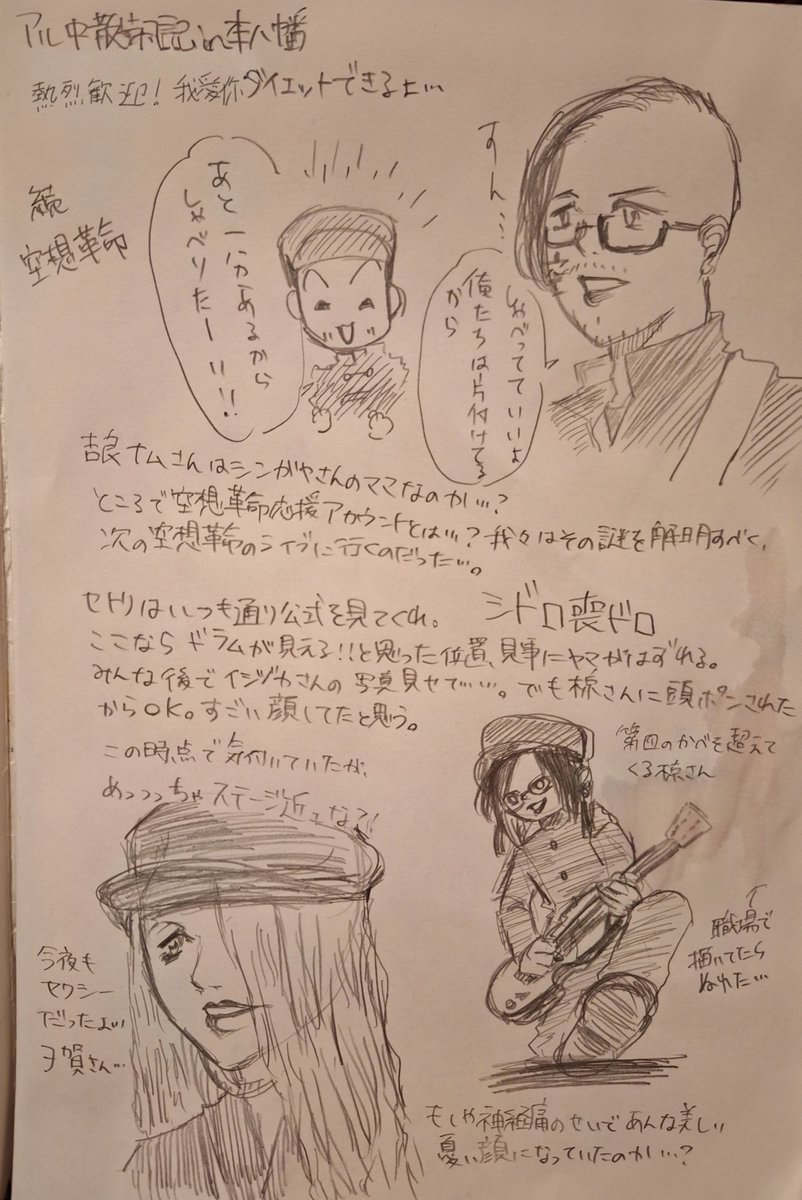 アル中散歩日記in本八幡
熱烈歓迎！我愛你ダイエットできるよ…
続
空想革命
すん…
しゃべってていいよ
俺たちは片付けてる
から
あと一分あるから
しゃべりたーい!!
吉良ナムさんはシンガヤさんのママなのか…？
ところで空想革命応援アカウントとは…？我々はその謎を解明すべく、
次の空想革命のライブに行くのだった…。
セトリはいつも通り公式を見てくれ。
シドロ喪ドロ
ここならドラムが見える!!と思った位置、見事にヤマがはずれる。
みんな後でイシヅカさんの写真見せて…。でも椋さんに頭ポンされた
からOK。すごい顔してたと思う。
この時点で気付いていたが、
めっっっちゃステージ近くな?!
第四のかべを超えて
くる椋さん
職場で
描いてたら
ぬれた…
今夜も
セクシー
だったよ…
賀さん…
もしや神経痛のせいであんな美しい
憂い顔になっていたのか…？